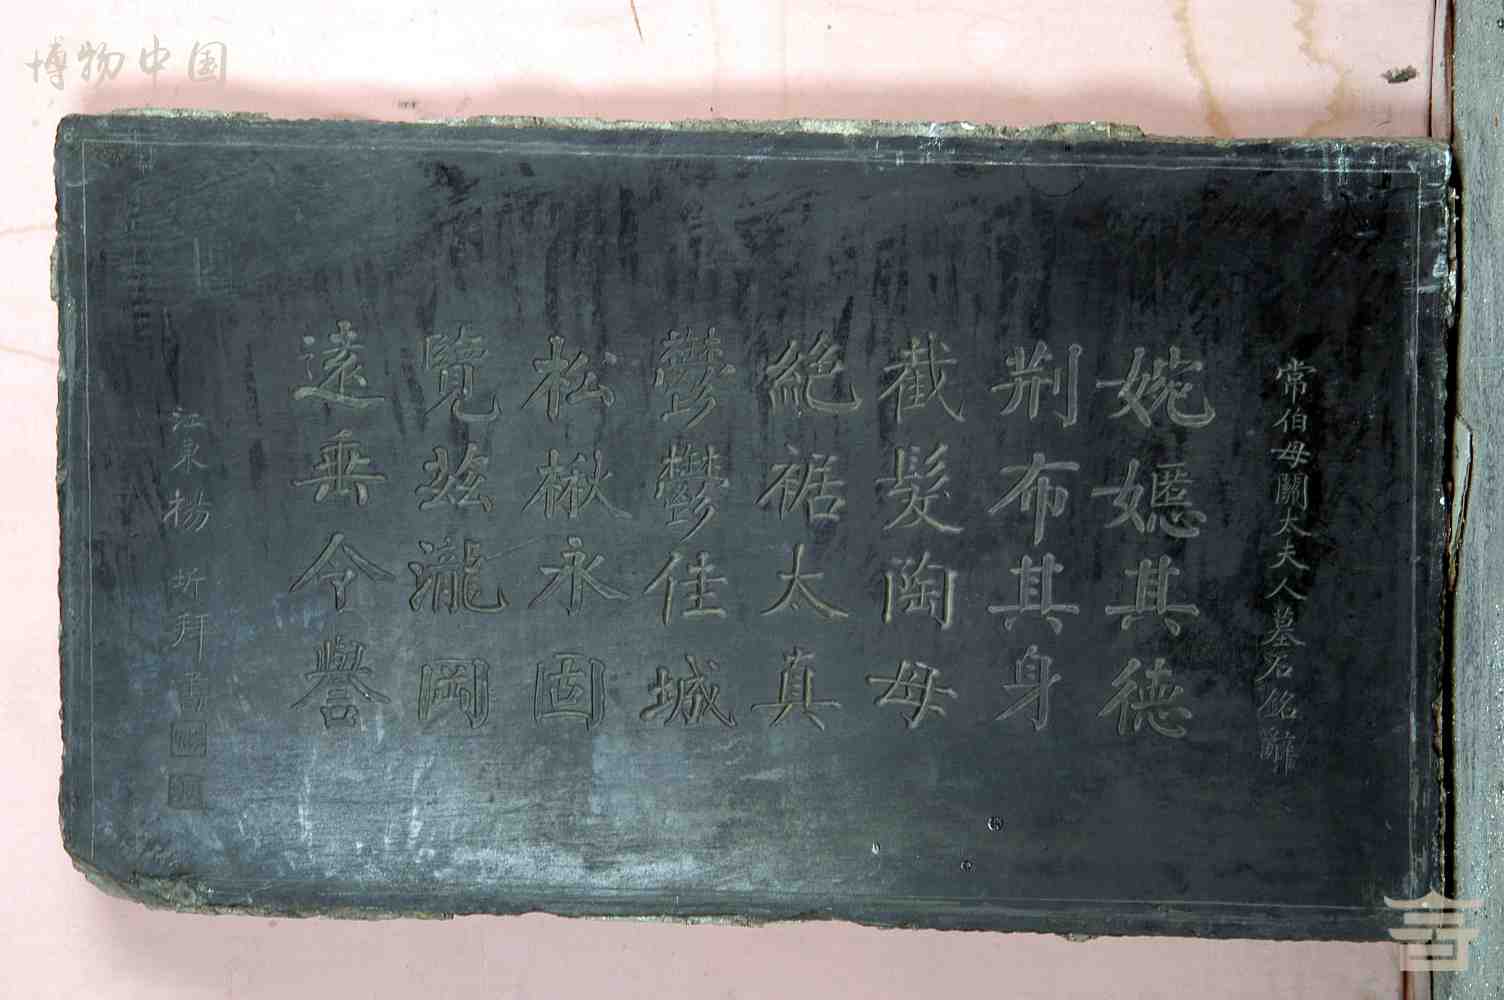 博物中国
常伯母關太夫人墓石銘辭
婉嫕其德
荆布其身
截髮陶母
絕裾太真
鬱鬱佳城
松楸永固
覽茲瀧岡
遠垂令譽
江東楊圻拜書